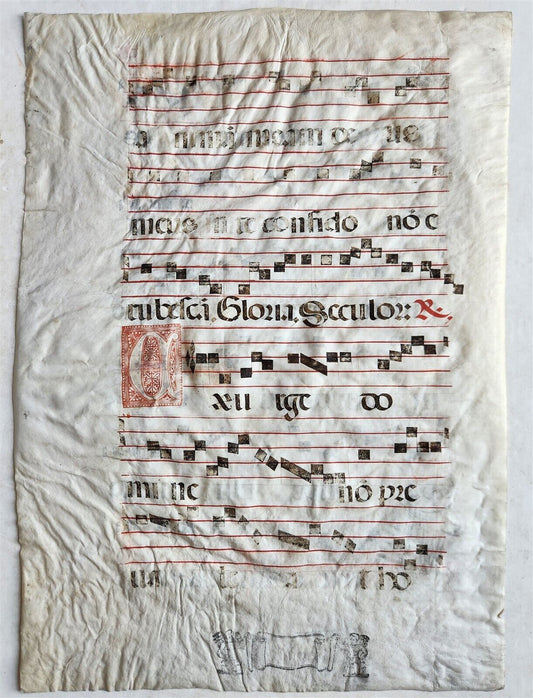 animā meam de us
meus in te confido nō e
rubescā. Gloria. Seculor: R.
Exurge do
mi ne nō pre
ua ho